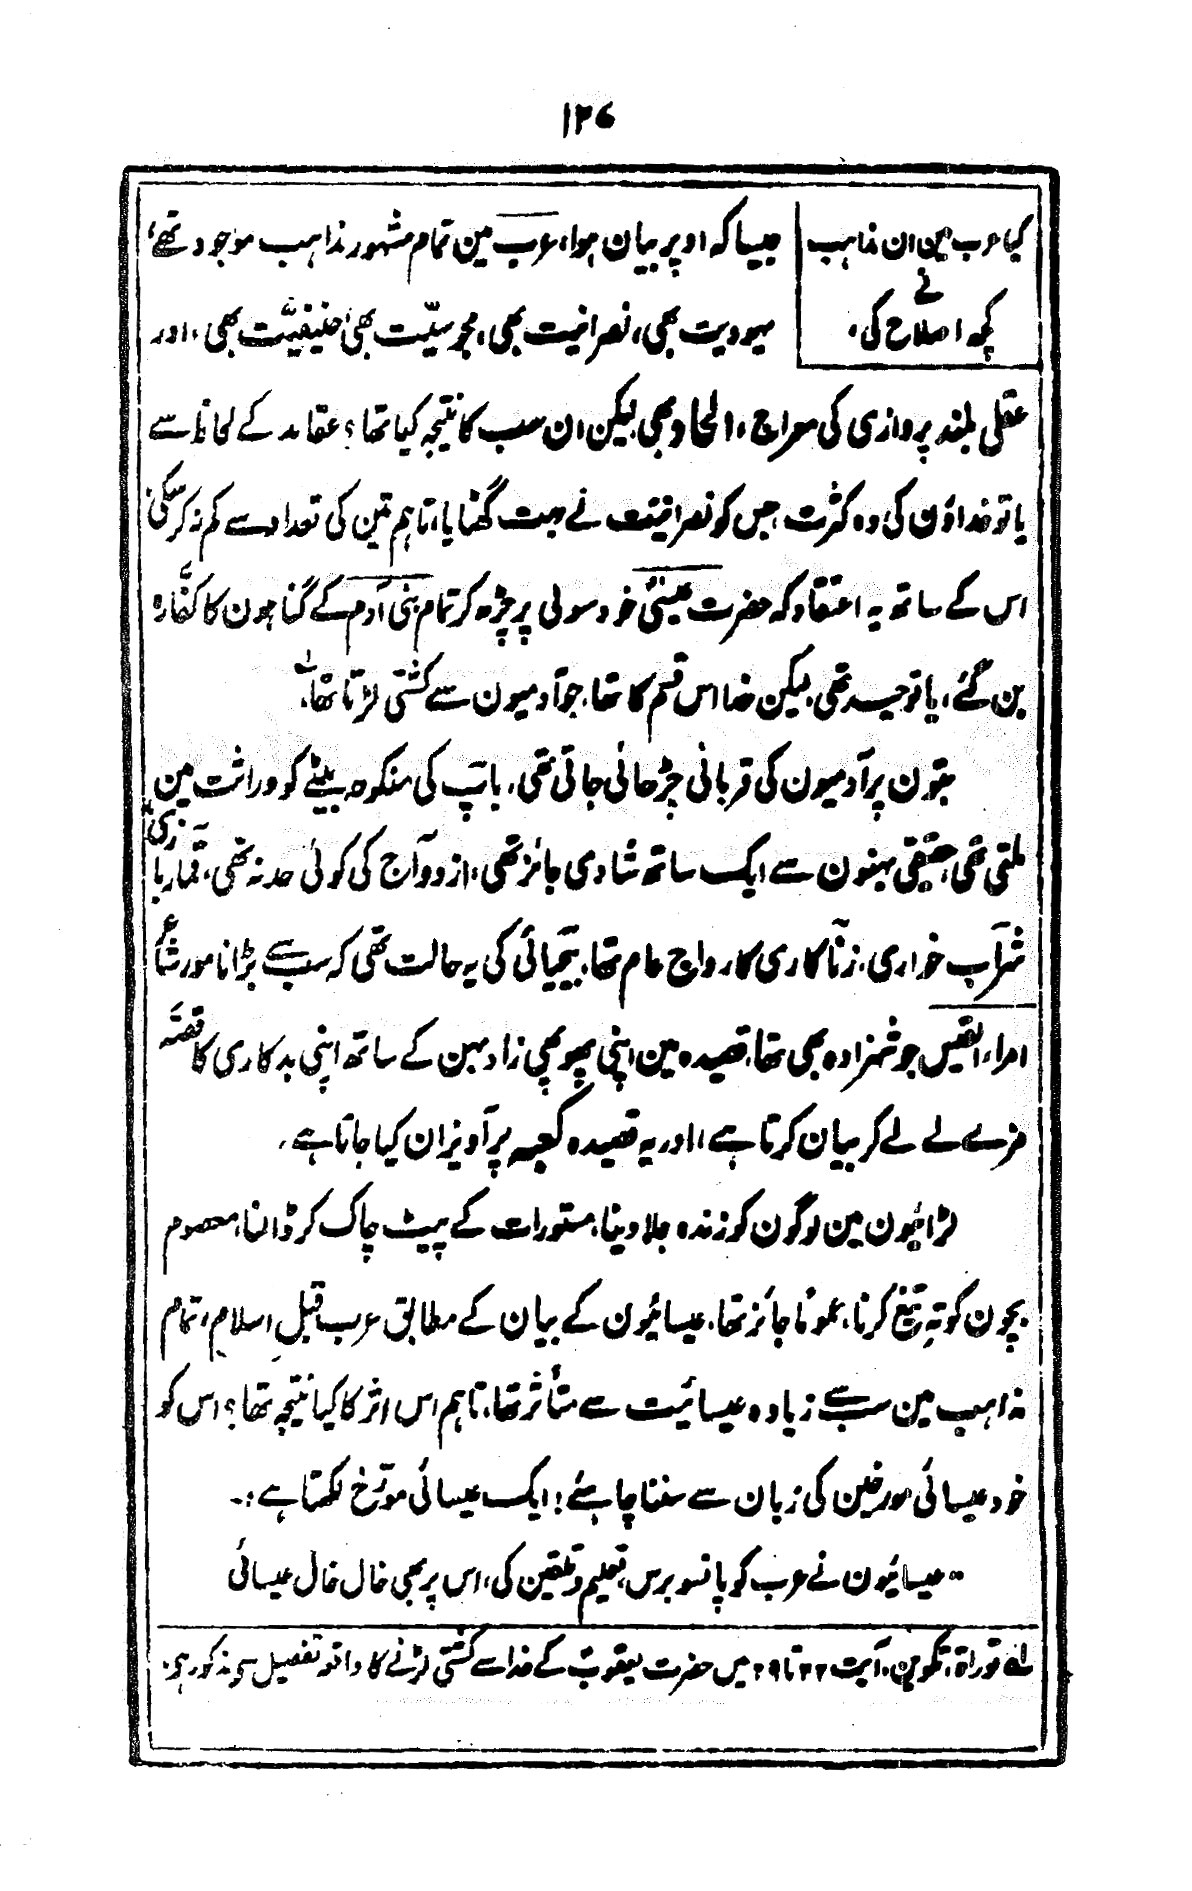 ۱۲۶
کیا عرب مین ان مذاہب
نے
کچھ اصلاح کی،
جیسا کہ اوپر بیان ہوا، عرب مین تمام مشہور مذاہب موجود تھے،
یہودیت بھی، نصرانیت بھی، مجوسیّت بھی، حنیفیّت بھی، اور
عقلی بلند پروازی کی معراج، الحاد بھی، لیکن ان سب کا نتیجہ کیا تھا؟ عقاید کے لحاظ سے
یا تو خداؤن کی وہ کثرت جس کو نصرانیت نے بہت گھٹایا، تاہم تین کی تعداد سے کم نہ کر سکی،
اس کے ساتھ یہ اعتقاد کہ حضرت عیسیٰؑ خود سولی پر چڑھ کر تمام بنی آدم کے گناہون کا کفّارہ
بن گئے، یا توحید تھی، لیکن خدا اس قسم کا تھا، جو آدمیون سے کشتی لڑتا تھا،
بتون پر آدمیون کی قربانی چڑھائی جاتی تھی، باپ کی منکوحہ بیٹے کو وراثت مین
ملتی تھی، حقیقی بہنون سے ایک ساتھ شادی جائز تھی، ازدواج کی کوئی حد نہ تھی، قمار بازی،
شراب خواری، زنا کاری کا رواج عام تھا، بیحیائی کی یہ حالت تھی کہ سب سے بڑا نامور شاعر
امراء القیس جو شہزادہ بھی تھا، قصیدہ مین اپنی پھوپھی زاد بہن کے ساتھ اپنی بدکاری کا قصّہ
مزے لے لے کر بیان کرتا ہے، اور یہ قصیدہ کعبہ پر آویزان کیا جاتا ہے،
لڑائیون مین لوگون کو زندہ جلا دینا، مستورات کے پیٹ چاک کر ڈالنا، معصوم
بچون کو تہِ تیغ کرنا، عموماً جائز تھا، عیسائیون کے بیان کے مطابق عرب قبلِ اسلام، تمام
مذاہب مین سب سے زیادہ عیسائیت سے متأثر تھا، تاہم اس اثر کا کیا نتیجہ تھا؟ اس کو
خود عیسائی مورخین کی زبان سے سننا چاہئے؛ ایک عیسائی مورّخ لکھتا ہے:۔
"عیسائیون نے عرب کو پانسو برس، تعلیم و تلقین کی، اس پر بھی خال خال عیسائی
لہ توراۃ، تکوین، آیت ۲۲ تا ۲۹ میں حضرت یعقوبؑ کے خدا سے کشتی لڑنے کا واقعہ تفصیل سے مذکور ہے،